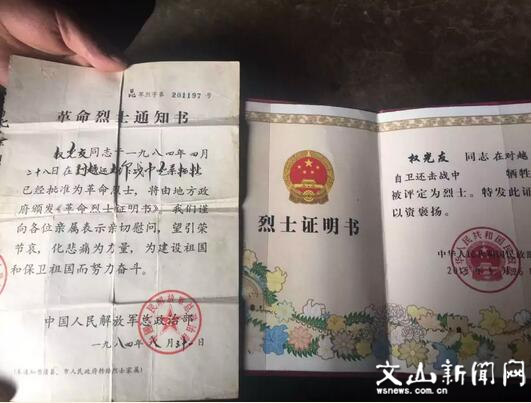 昆 军烈字第 201197 号
革命烈士通知书
权光友同志于一九八四年四月
二十八日在对越
已经批准为革命烈士，将由地方政
府颁发《革命烈士证明书》。我们谨
向各位亲属表示亲切慰问，望引荣
节哀，化悲痛为力量，为建设祖国
和保卫祖国而努力奋斗。
中国人民解放军总政治部
一九八四年八月 日
(本通知书请县、市人民政府转给烈士家属)
烈士证明书
权光友 同志在对越
自卫还击战中 牺牲
被评定为烈士。特发此证
以资褒扬。
中华人民共和国民政部
文山新闻网
WSNEWS.COM.CN